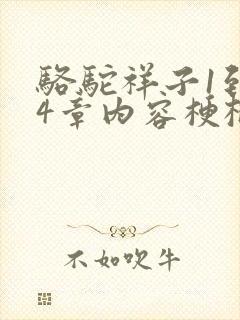 骆驼祥子1到
4章内容梗概
不如吹牛